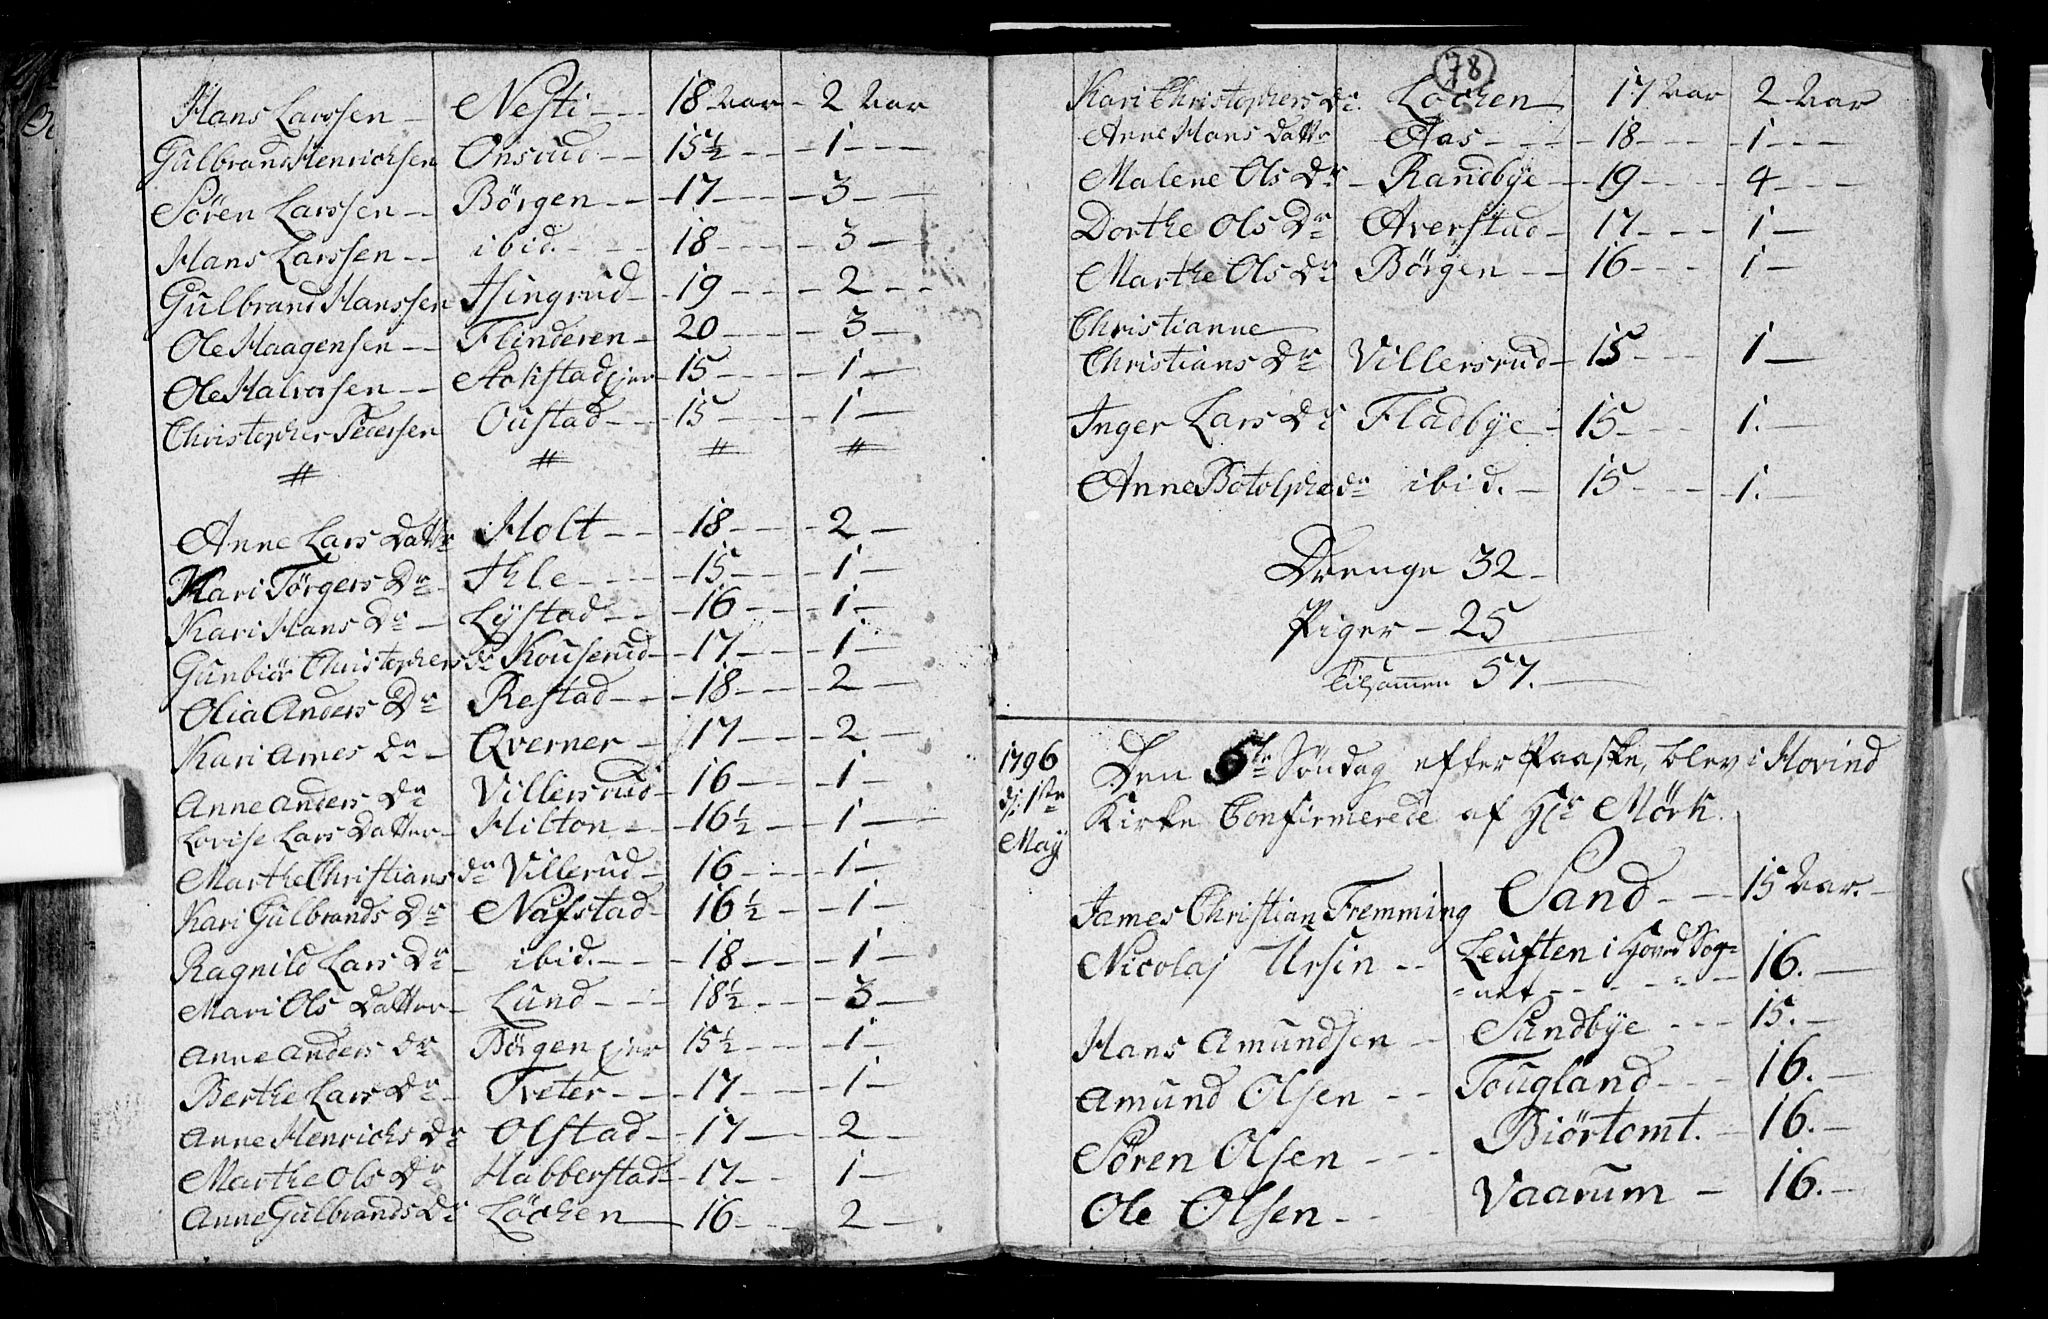 Hans Larssen - Nesti - - - 18 Aar - 2 Aar
Gulbrand Henrichsen Onsrud - - 15½ - - - 1 - - -
Sören Larssen - - Börgen - - - 17 - - - - 3 - - -
Hans Larssen - - ibid. - - - 18 - - - - 3 - -
Gulbrand Hanssen - 19 - - - 2 - - -
Ole Haagensen - - Flinderen - 20 - - - - 3 -
Ole Halvorsen - - 15 - - - - 1 - -
Christopher Pedersen Oustad - - 15 - - - 1 -
# # # #
Anne Lars Dattr Holt - - - 18 - - - 2 -
Kari Törgers Dr - Ihle - - - - 15 - - - 1 -
Kari Hans Dr - Lÿstad - - - 16 - - - 1 -
Gunbiör Christophers dr Kouserud - 17 - - - 1 -
Olia Anders Dr Restad - - - 18 - - - 2 -
Kari Arnes Dr - Qverner - 17 - - - 2 -
Anne Anders Dr Villersrud - 16 - - - 1 -
Lovise Lars Datter - Hilton - - 16½ - - - 1 -
Marthe Christians dr Villerud - 16 - - - 1 -
Kari Gulbrands Dr Nafstad - 16½ - - - 1 -
Ragnild Lars Dr - ibid. - - - 18 - - - 1 -
Mari Ols Datter - Lund - - - 18½ - - - 3 -
Anne Anders Dr Börgen eier 15½ - - - 1 -
Berthe Lars Dr - Tveter - - - 17 - - - 1 -
Anne Henrichs Dr Olstad - - 17 - - - 2 -
Marthe Ols Dr Habberstad - 17 - - 1 -
Anne Gulbrands Dr Löchen - 16 - - - 2 -
78
Kari Christophers Dr. Löchen 17 Aar 2 Aar
Anne Hans Dattr Aas - - - - 18 - - - 1 - - -
Malene Ols Dr - Randbÿe - 19 - - - 4 - - -
Dorthe Ols Dr Averstad - 17 - - - 1 -
Marthe Ols Dr Börgen - - 16 - - - 1 -
Christianne
Christians Dr Villersrud - 15 - - - 1 -
Inger Lars Dr Fladbÿe - 15 - - - 1. -
Anne Botolphs dr ibid. - 15 - - - 1. -
Drenge 32 -
Piger - 25
Tilsammen 57. -
1796
d: 1ste
Maÿ
Den 5te Söndag efter Paaske, blev i Hovind
Kirke Confirmerede af Hr Mörk.
James Christian Fremming Sand - - 15 Aar. -
Nicolaj Ursin - - Leuften i Hoved Sog=
=net - - - - 16. -
Hans Amundsen - - Sundbÿe - - - 15. -
Amund Olsen - - Tougland - - - 16. -
Sören Olsen - - - Biörtomt. - 16. -
Ole Olsen - - Vaarum - 16. -